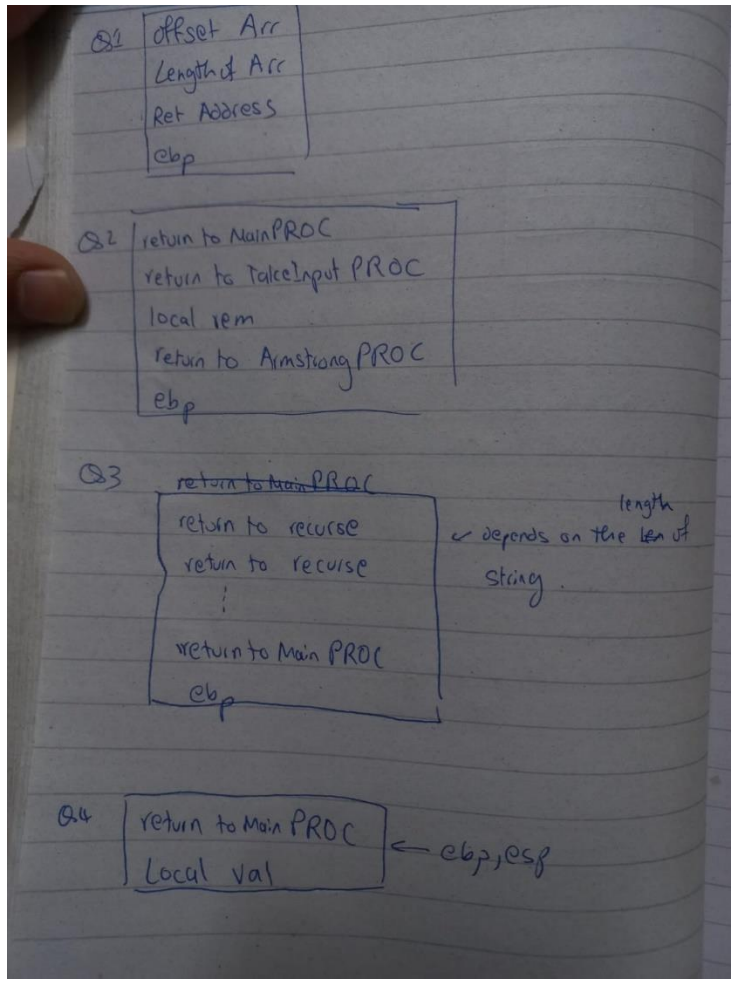 Q1 offset Arr
Length of Arr
Ret Address
ebp
Q2 return to Main PROC
return to TakeInput PROC
local rem
return to Armstrong PROC
ebp
Q3 return to Main PROC
return to recurse
return to recurse
return to Main PROC
ebp
length
depends on the len of
string.
Q4 return to Main PROC
Local val
ebp, esp